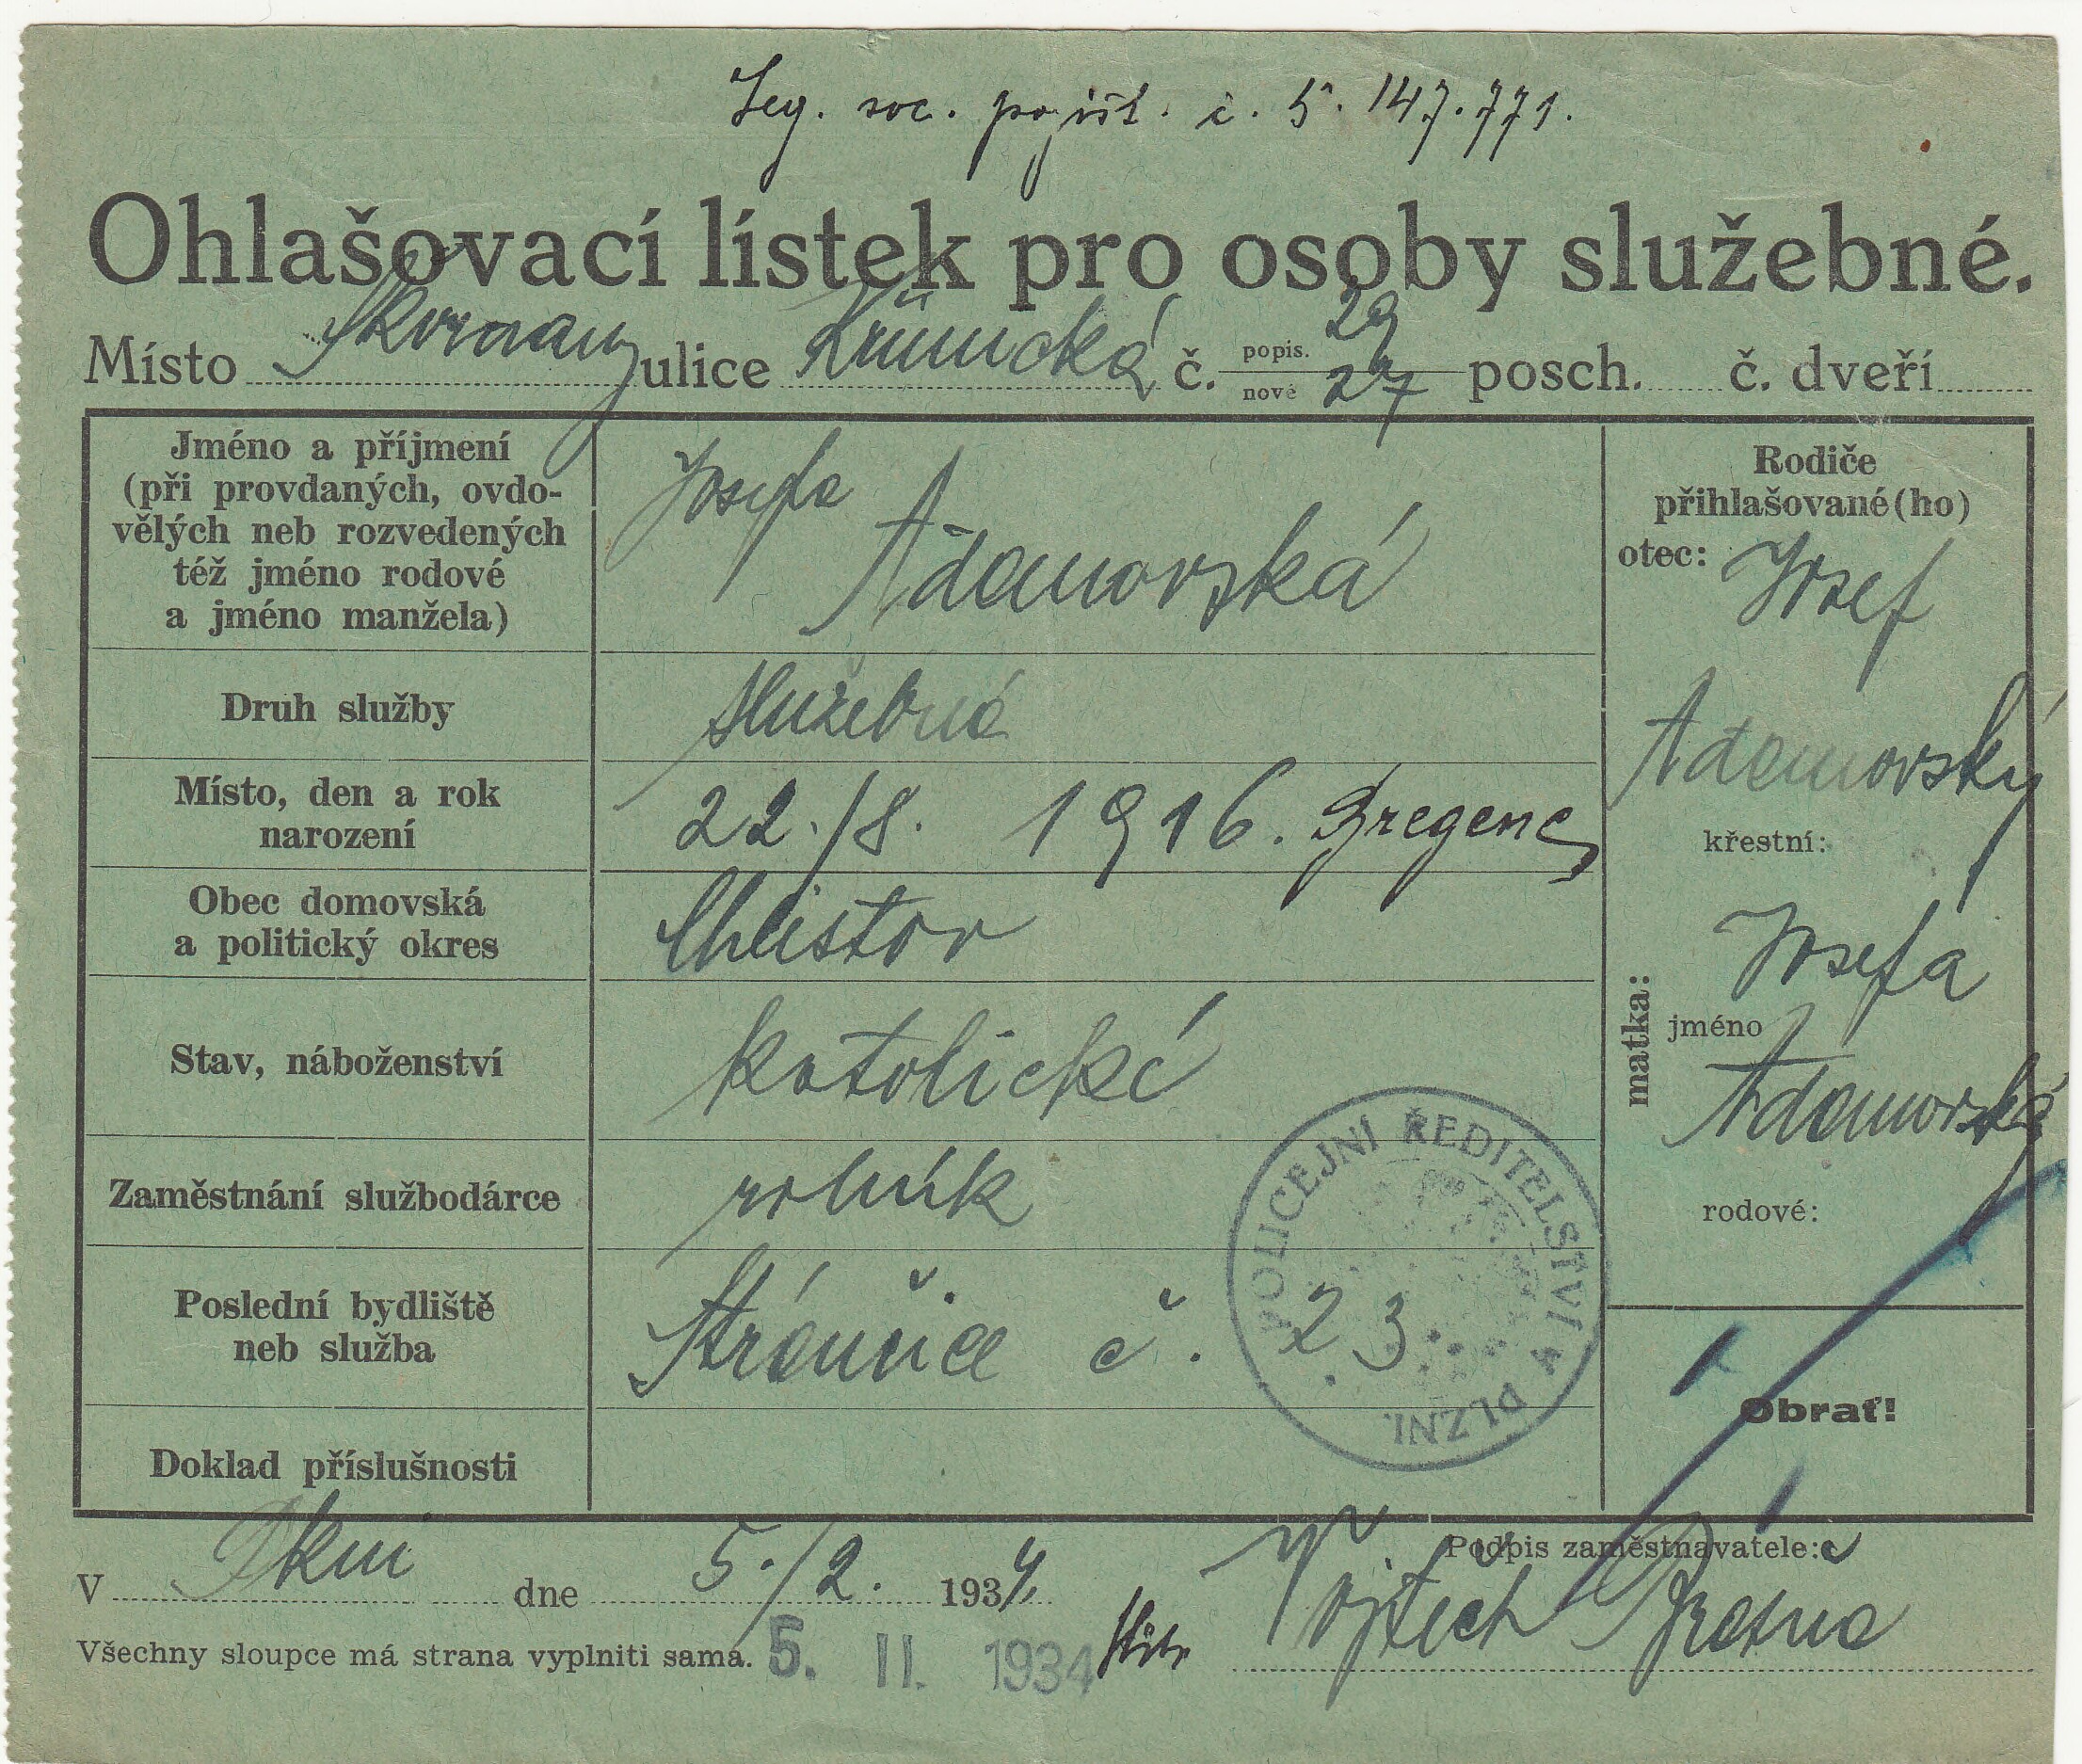 Leg. soc. pojišť. č. 5. 147.771.
Ohlašovací lístek pro osoby služebné.
Místo Skvrňany ulice Křimická č. popis. 29 nové 27 posch. č. dveří
Jméno a příjmení
(při provdaných, ovdo-
vělých neb rozvedených
též jméno rodové
a jméno manžela)
Josefa
Adamovská
Druh služby
služebná
Místo, den a rok
narození
22./8. 1916. Bregenc
Obec domovská
a politický okres
Chlistov
Stav, náboženství
katolické
Zaměstnání službodárce
rolník
Poslední bydliště
neb služba
č. 23.
Doklad příslušnosti
Rodiče
přihlašované(ho)
otec: Josef
Adamovský
matka:
křestní:
Josefa
jméno
Adamovská
rodové:
Obrať!
POLICEJNÍ ŘEDITELSTVÍ V PLZNI.
V Plzni dne 5./2. 1934
Podpis zaměstnavatele:
Vojtěch
Všechny sloupce má strana vyplniti sama.
5. II. 1934